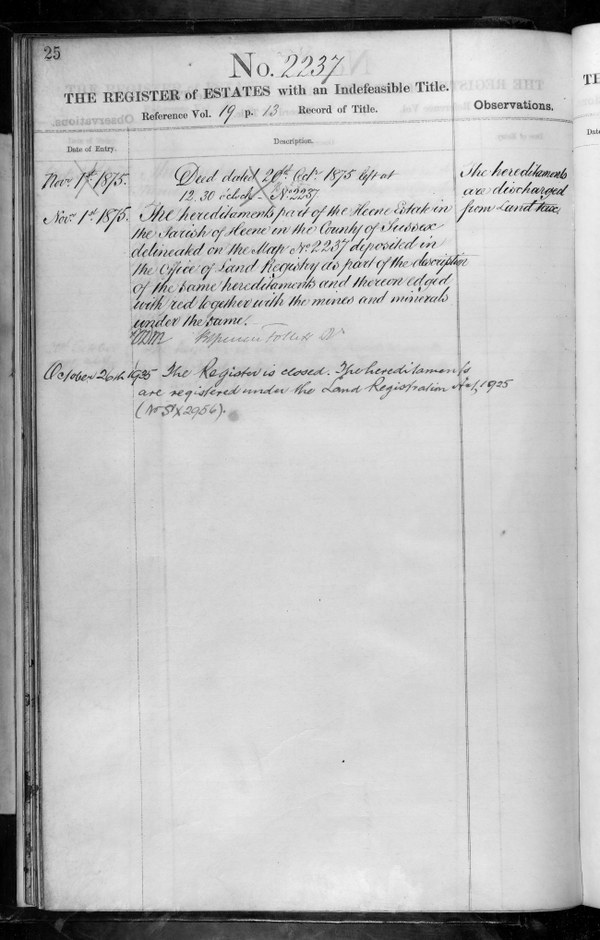 25
No. 2237
THE REGISTER of ESTATES with an Indefeasible Title.
Reference Vol. 19 p. 13 Record of Title.
Observations.
Date of Entry.
Description.
Novr. 1st. 1875.
Deed dated 20th. Octr. 1875 left at
12.30 o'clock - No 2237
Novr. 1st. 1875.
The hereditaments part of the Heene Estate in
the Parish of Heene in the County of Sussex
delineated on the Map No 2237 deposited in
the Office of Land Registry as part of the description
of the same hereditaments and thereon edged
with red together with the mines and minerals
under the same.
Spencer Follett
The hereditaments
are discharged
from Land tax.
October 26th 1935
The Register is closed. The hereditaments
are registered under the Land Registration Act, 1925
(No SX 2956).